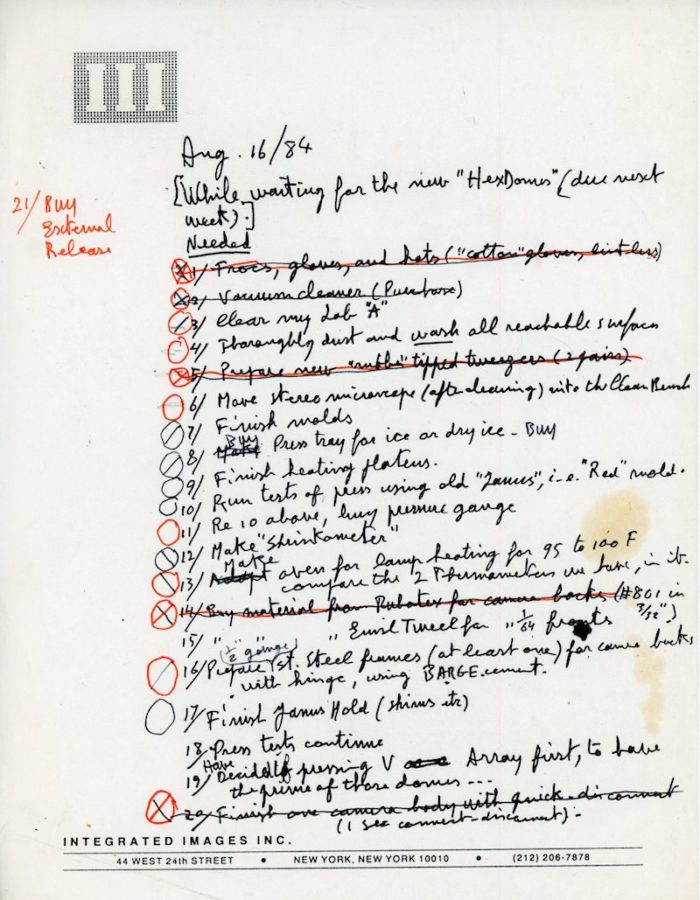 III
Aug. 16/84
[While waiting for the new "HexDomes" (due next
week).]
21/ Buy
External
Release
Needed
1/ Frocs, gloves, and hats ("cotton" gloves, lint less)
2/ Vacuum cleaner (Purchase)
3/ Clear my Lab "A"
4/ Thoroughly dust and wash all reachable surfaces
5/ Prepare new "rubber" tipped tweezers (2 pairs)
6/ Move stereo microscope (after cleaning) into the Clean Bench
7/ Finish molds
8/ Make Buy Press tray for ice or dry ice - Buy
9/ Finish heating platens.
10/ Run tests of press using old "Janus", i.e. "Red" mold.
11/ Re 10 above, buy pressure gauge
12/ Make "Shrinkometer"
13/ Adapt Make oven for lamp heating for 95 to 100 F
compare the 2 Thermometers we have, in it.
14/ Buy material from Rubatex for camera backs (#801 in 3/32")
15/ " " " Emil Tweel for " 1/64 fronts
(1/2 gauge)
16/ Prepare 1st. Steel frames (at least one) for camera backs
with hinge, using BARGE cement.
17/ Finish Janus Hold (shims etc)
18/ Press tests continue
19/ Have Decided pressing V Array first, to have
the prime of those domes ---
20/ Finish one camera body with quick-disconnect
(1 sec connect-disconnect).-
INTEGRATED IMAGES INC.
44 WEST 24th STREET • NEW YORK, NEW YORK 10010 • (212) 206-7878